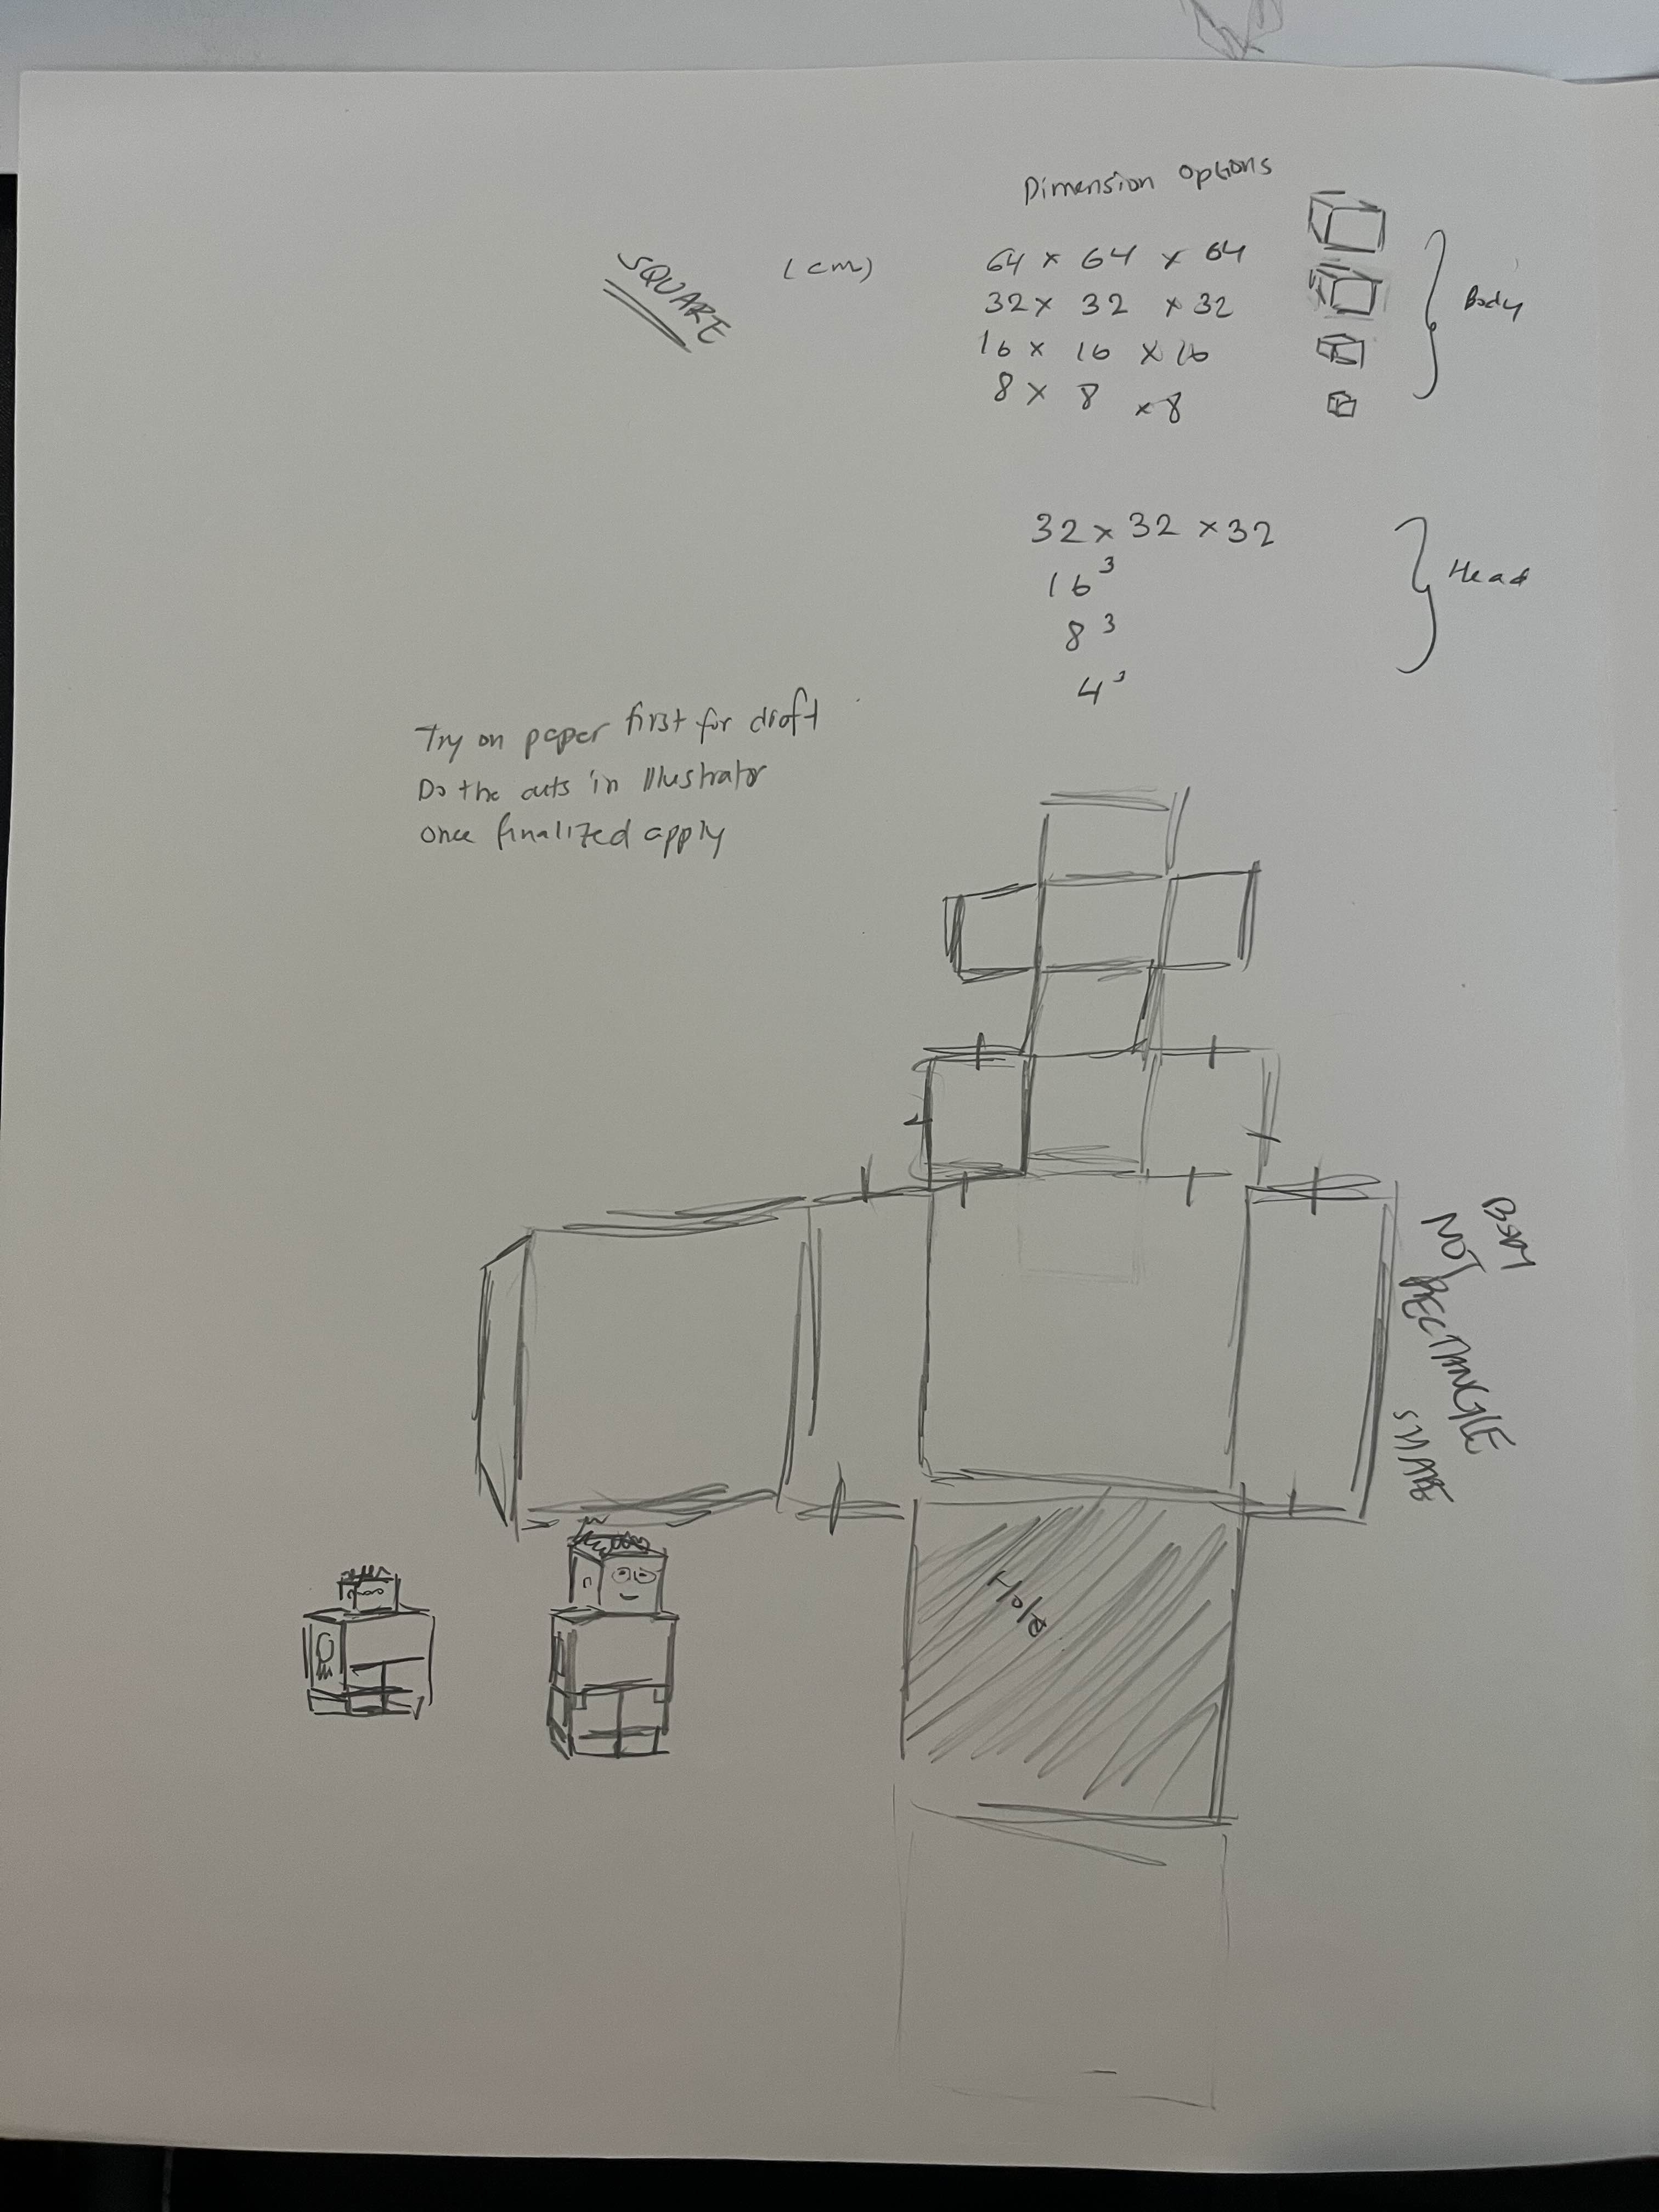 Dimension Options
SQUARE
(cm)
64 x 64 x 64
32 x 32 x 32
16 x 16 x 16
8 x 8 x 8
Body
32 x 32 x 32
16³
8³
4³
Head
Try on paper first for draft
Do the cuts in Illustrator
Once finalized apply
NOT
RECTANGLE
Hole